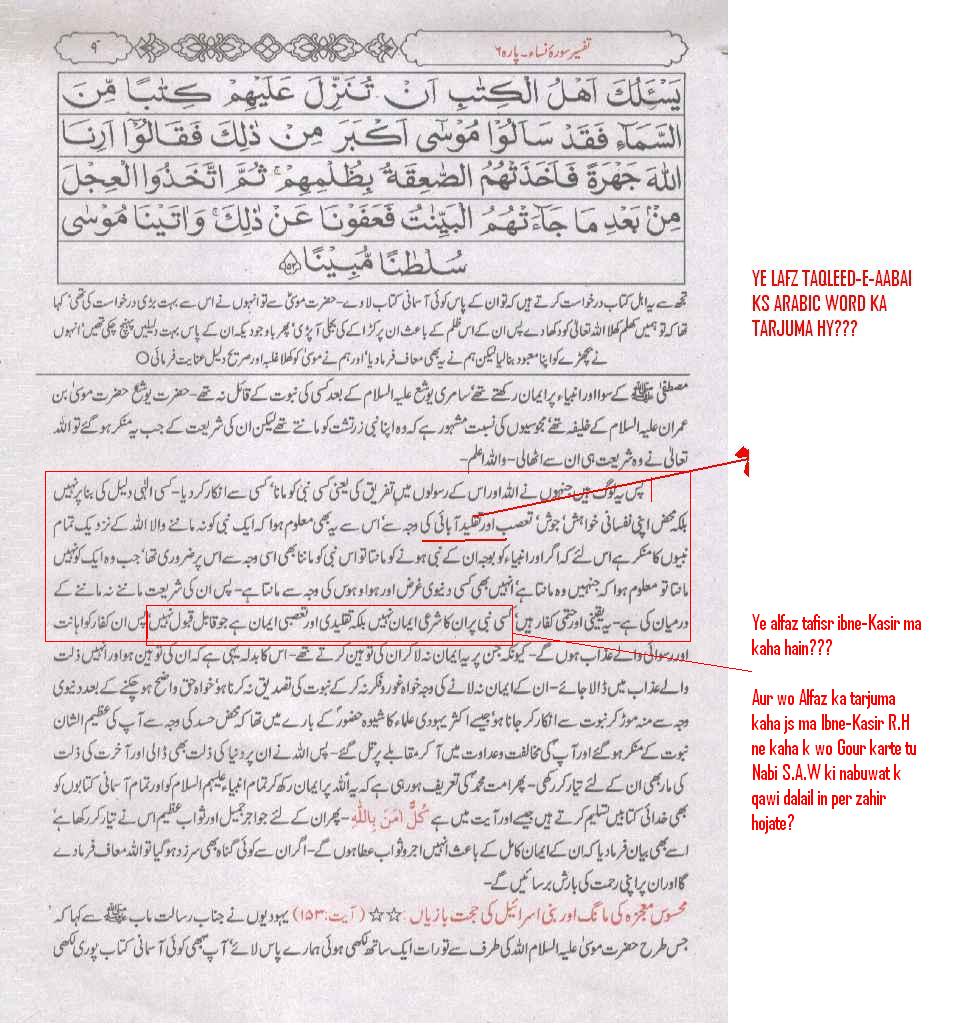 ۹
تفسیر سورۂ نساء۔ پارہ ۶
یَسْـَٔلُكَ اَهْلُ الْكِتٰبِ اَنْ تُنَزِّلَ عَلَیْهِمْ كِتٰبًا مِّنَ
السَّمَآءِ فَقَدْ سَاَلُوْا مُوْسٰۤی اَكْبَرَ مِنْ ذٰلِكَ فَقَالُوْۤا اَرِنَا
اللّٰهَ جَهْرَةً فَاَخَذَتْهُمُ الصّٰعِقَةُ بِظُلْمِهِمْ ۚ ثُمَّ اتَّخَذُوا الْعِجْلَ
مِنْۢ بَعْدِ مَا جَآءَتْهُمُ الْبَیِّنٰتُ فَعَفَوْنَا عَنْ ذٰلِكَ ۚ وَاٰتَیْنَا مُوْسٰی
سُلْطٰنًا مُّبِیْنًا ﴿۱۵۳﴾
تجھ سے یہ اہل کتاب درخواست کرتے ہیں کہ تو ان کے پاس کوئی آسمانی کتاب لاوے۔ حضرت موسیٰؑ سے تو انہوں نے اس سے بہت بڑی درخواست کی تھی' کہا
تھا کہ تو ہمیں کھلم کھلا اللہ تعالیٰ کو دکھادے پس ان کے اس ظلم کے باعث ان پر کڑاکے کی بجلی آپڑی' پھر باوجودیکہ ان کے پاس بہت دلیلیں پہنچ چکی تھیں' انہوں
نے بچھڑے کو اپنا معبود بنالیا لیکن ہم نے یہ بھی معاف فرمادیا' اور ہم نے موسیٰ کو کھلا غلبہ اور صریح دلیل عنایت فرمائی ○
مصطفیٰ ﷺ کے سوا اور انبیاء پر ایمان رکھتے تھے' سامری یوشع علیہ السلام کے بعد کسی کی نبوت کے قائل نہ تھے۔ حضرت یوشعؑ حضرت موسیٰ بن
عمران علیہ السلام کے خلیفہ تھے' مجوسیوں کی نسبت مشہور ہے کہ وہ اپنا نبی زرتشت کو مانتے تھے لیکن ان کی شریعت کے جب یہ منکر ہوگئے تو اللہ
تعالیٰ نے وہ شریعت ہی ان سے اٹھالی۔ واللہ اعلم۔
پس یہ لوگ ہیں جنہوں نے اللہ اور اس کے رسولوں میں تفریق کی یعنی کسی نبی کو مانا' کسی سے انکار کردیا۔ کسی الٰہی دلیل کی بنا پر نہیں
بلکہ محض اپنی نفسانی خواہش' جوش' تعصب اور تقلید آبائی کی وجہ سے' اس سے یہ بھی معلوم ہوا کہ ایک نبی کو نہ ماننے والا اللہ کے نزدیک تمام
نبیوں کا منکر ہے اس لئے کہ اگر اور انبیاء کو بوجہ ان کے نبی ہونے کو مانتا تو اس نبی کو ماننا بھی اسی وجہ سے اس پر ضروری تھا' جب وہ ایک کو نہیں
مانتا تو معلوم ہوا کہ جنہیں وہ مانتا ہے' انہیں بھی کسی دنیوی غرض اور ہوا و ہوس کی وجہ سے مانتا ہے۔ پس ان کی شریعت ماننے نہ ماننے کے
درمیان کی ہے۔ یہ یقینی اور حتمی کفار ہیں' کسی نبی پر ان کا شرعی ایمان نہیں بلکہ تقلیدی اور تعصبی ایمان ہے جو قابل قبول نہیں' پس ان کفار کو اہانت
اور رسوائی والے عذاب ہوں گے۔ کیونکہ جن پر یہ ایمان نہ لاکر ان کی توہین کرتے تھے۔ اس کا بدلہ یہی ہے کہ ان کی توہین ہو اور انہیں ذلت
والے عذاب میں ڈالا جائے۔ ان کے ایمان نہ لانے کی وجہ خواہ غور و فکر نہ کرکے نبوت کی تصدیق نہ کرنا ہو' خواہ حق واضح ہوچکنے کے بعد دنیوی
وجہ سے منہ موڑ کر نبوت سے انکار کر جانا ہو' جیسے اکثر یہودی علماء کا شیوہ حضورؐ کے بارے میں تھا کہ محض حسد کی وجہ سے آپ کی عظیم الشان
نبوت کے منکر ہوگئے اور آپؐ کی مخالفت و عداوت میں آ کر مقابلے پر تل گئے۔ پس اللہ نے ان پر دنیا کی ذلت بھی ڈالی اور آخرت کی ذلت
کی مار بھی ان کے لئے تیار کر رکھی۔ پھر امت محمدؐ کی تعریف ہو رہی ہے کہ یہ اللہ پر ایمان رکھ کر تمام انبیاء علیہم السلام کو اور تمام آسمانی کتابوں کو
بھی خدائی کتابیں تسلیم کرتے ہیں جیسے اور آیت میں ہے كُلٌّ اٰمَنَ بِاللّٰهِ۔ پھر ان کے لئے جو اجر جمیل اور ثواب عظیم اس نے تیار کر رکھا ہے'
اسے بھی بیان فرمادیا کہ ان کے ایمان کامل کے باعث انہیں اجر و ثواب عطا ہوں گے۔ اگر ان سے کوئی گناہ بھی سرزد ہوگیا تو اللہ معاف فرمادے
گا اور ان پر اپنی رحمت کی بارش برسائیں گے۔
محسوس معجزہ کی مانگ اور بنی اسرائیل کی حجت بازیاں: ☆☆ (آیت:۱۵۳) یہودیوں نے جناب رسالت مآب ﷺ سے کہا کہ
جس طرح حضرت موسیٰ علیہ السلام اللہ کی طرف سے تورات ایک ساتھ لکھی ہوئی ہمارے پاس لائے' آپؐ بھی کوئی آسمانی کتاب پوری لکھی
YE LAFZ TAQLEED-E-AABAI
KS ARABIC WORD KA
TARJUMA HY???
Ye alfaz tafisr ibne-Kasir ma
kaha hain???
Aur wo Alfaz ka tarjuma
kaha js ma Ibne-Kasir R.H
ne kaha k wo Gour karte tu
Nabi S.A.W ki nabuwat k
qawi dalail in per zahir
hojate?